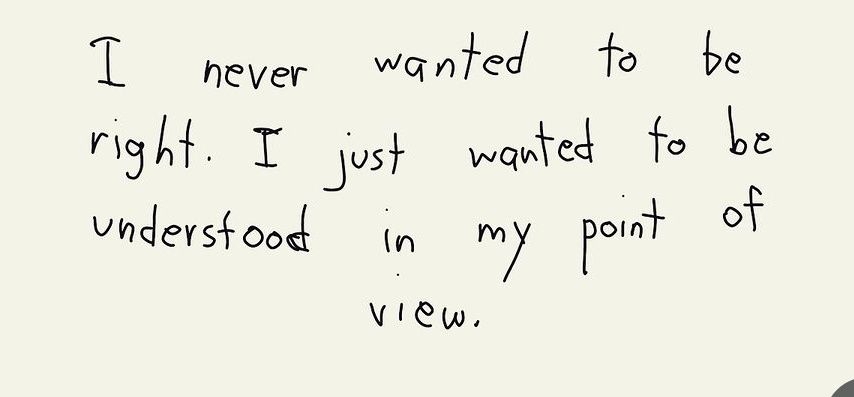 I never wanted to be
right. I just wanted to be
understood in my point of
view.